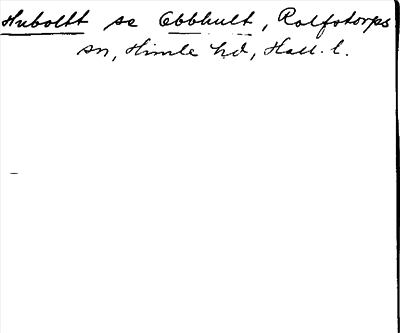 Huboltt se Ebbhult, Rolfstorps
sn, Himle hd, Hall. l.